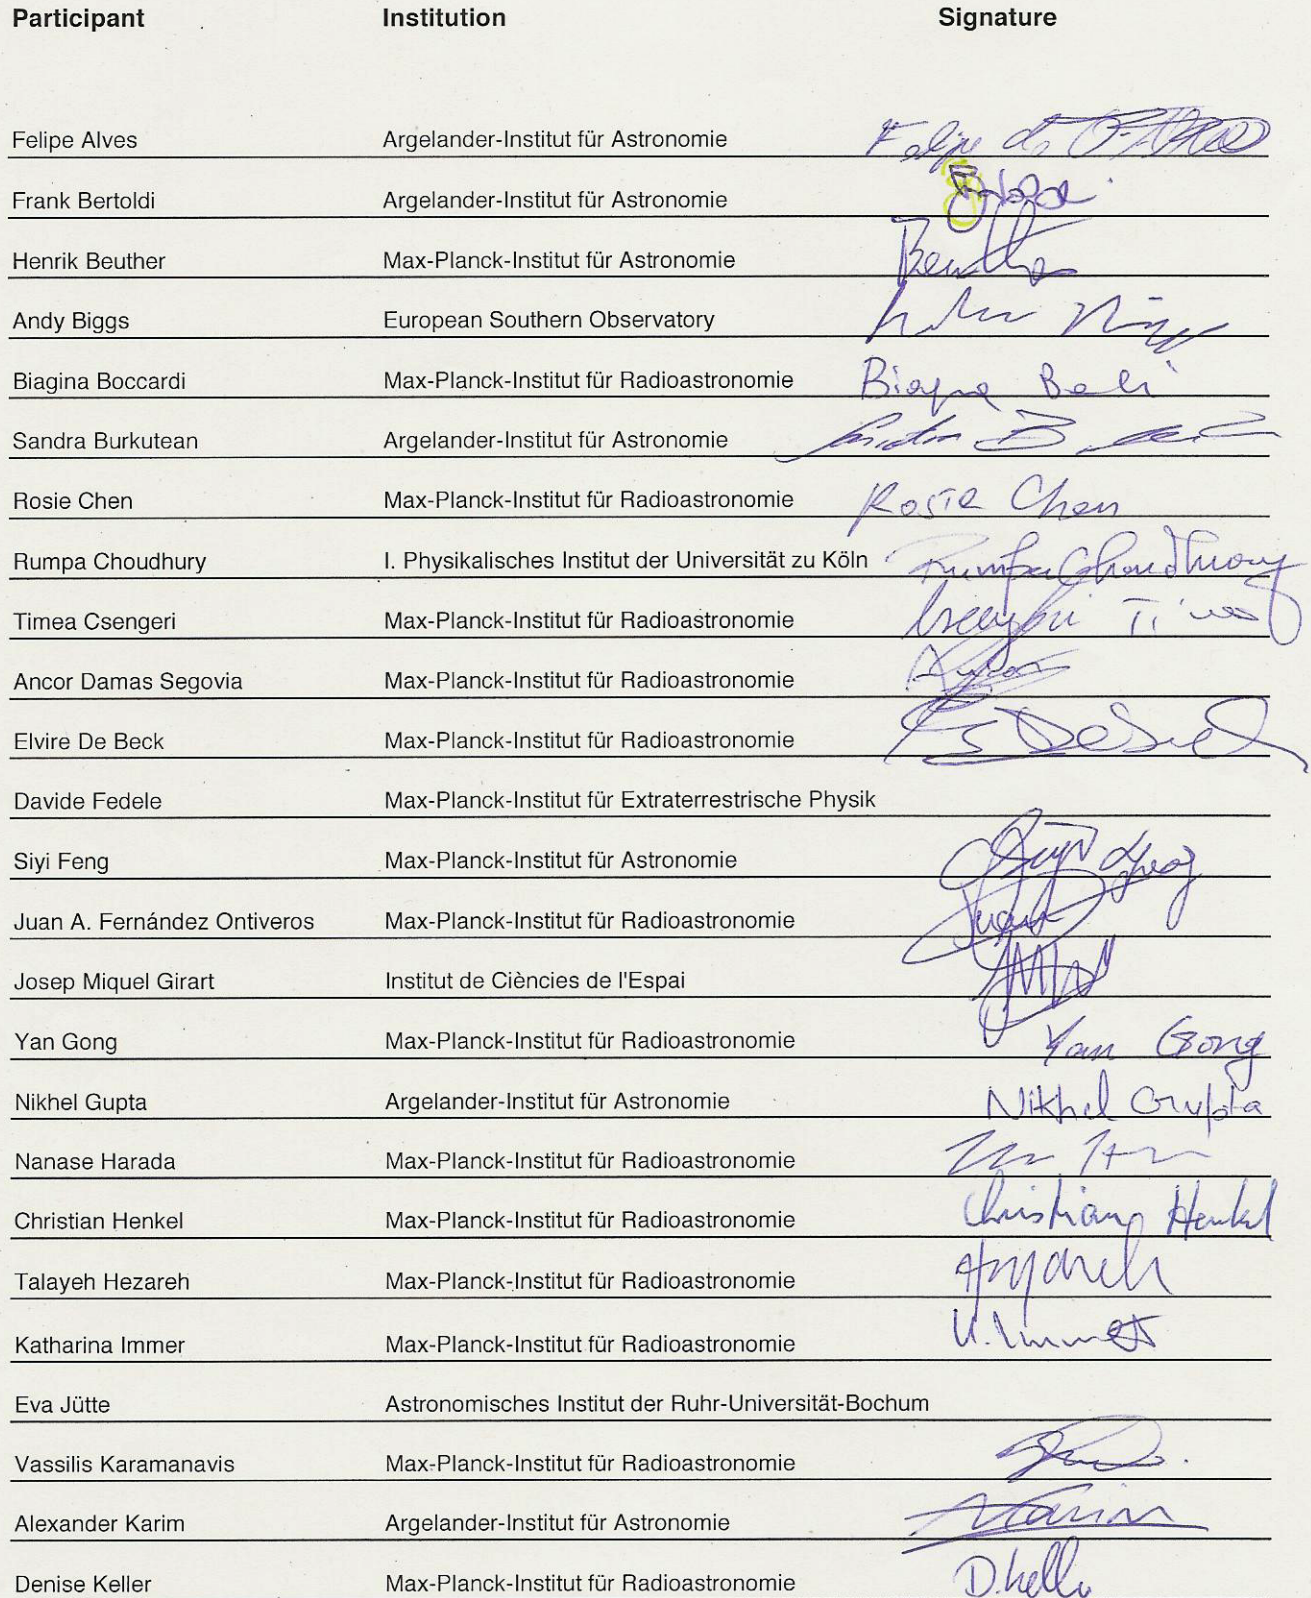 Participant Institution Signature
Felipe Alves Argelander-Institut für Astronomie Felipe
Frank Bertoldi Argelander-Institut für Astronomie
Henrik Beuther Max-Planck-Institut für Astronomie Beuther
Andy Biggs European Southern Observatory
Biagina Boccardi Max-Planck-Institut für Radioastronomie
Sandra Burkutean Argelander-Institut für Astronomie
Rosie Chen Max-Planck-Institut für Radioastronomie Rosie Chen
Rumpa Choudhury I. Physikalisches Institut der Universität zu Köln Rumpa Choudhury
Timea Csengeri Max-Planck-Institut für Radioastronomie Csengeri
Ancor Damas Segovia Max-Planck-Institut für Radioastronomie
Elvire De Beck Max-Planck-Institut für Radioastronomie
Davide Fedele Max-Planck-Institut für Extraterrestrische Physik
Siyi Feng Max-Planck-Institut für Astronomie
Juan A. Fernández Ontiveros Max-Planck-Institut für Radioastronomie
Josep Miquel Girart Institut de Ciències de l'Espai
Yan Gong Max-Planck-Institut für Radioastronomie Yan Gong
Nikhel Gupta Argelander-Institut für Astronomie Nikhel Gupta
Nanase Harada Max-Planck-Institut für Radioastronomie
Christian Henkel Max-Planck-Institut für Radioastronomie Christian Henkel
Talayeh Hezareh Max-Planck-Institut für Radioastronomie
Katharina Immer Max-Planck-Institut für Radioastronomie
Eva Jütte Astronomisches Institut der Ruhr-Universität-Bochum
Vassilis Karamanavis Max-Planck-Institut für Radioastronomie
Alexander Karim Argelander-Institut für Astronomie Karim
Denise Keller Max-Planck-Institut für Radioastronomie D. Keller